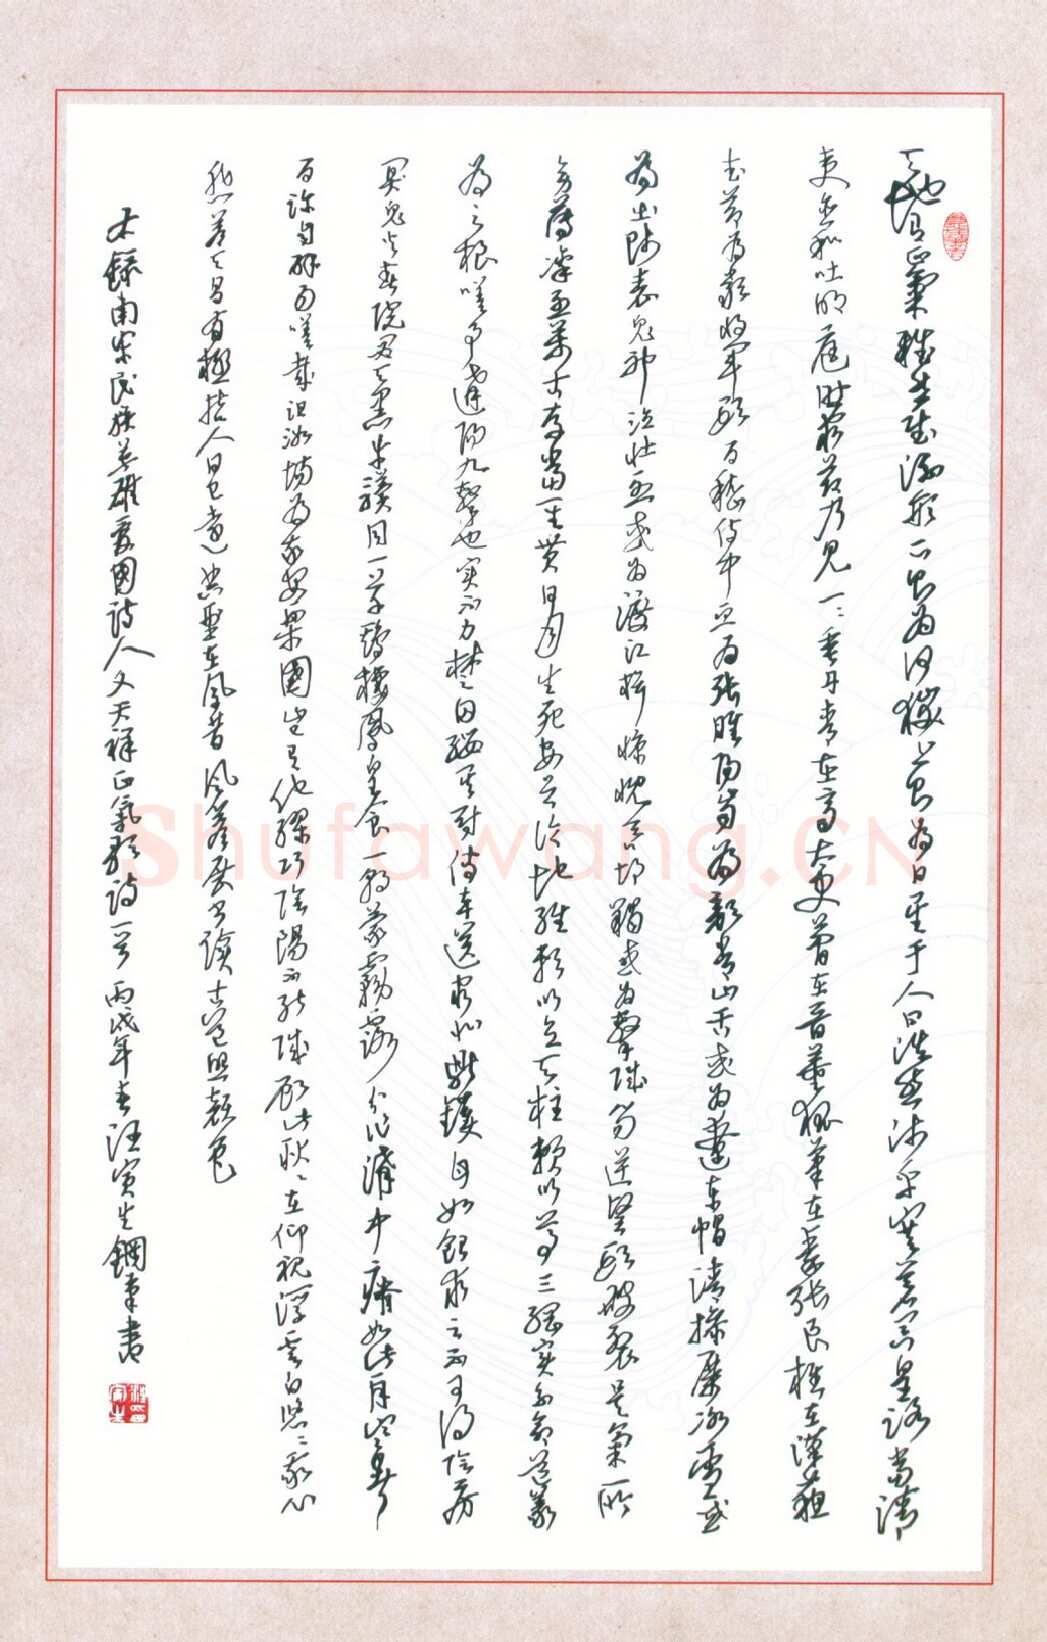 天地有正氣雜然賦流形下則為河嶽上則為日星于人曰浩然沛乎塞蒼冥皇路當清
夷含和吐明庭時窮節乃見一一垂丹青在齊太史簡在晉董狐筆在秦張良椎在漢蘇
武節為嚴將軍頭為嵇侍中血為張睢陽齒為顏常山舌或為遼東帽清操厲冰雪或
為出師表鬼神泣壯烈或為渡江楫慷慨吞胡羯或為擊賊笏逆豎頭破裂是氣所
旁薄凜烈萬古存當其貫日月生死安足論地維賴以立天柱賴以尊三綱實系命道義
為之根嗟予遘陽九隸也實不力楚囚纓其冠傳車送窮北鼎鑊甘如飴求之不可得陰房
闃鬼火春院閟天黑牛驥同一皂雞棲鳳凰食一朝蒙霧露分作溝中瘠如此再寒暑
百沴自辟易嗟哉沮洳場為我安樂國豈有他繆巧陰陽不能賊顧此耿耿在仰視浮雲白悠悠我心
悲蒼天曷有極哲人日已遠典型在夙昔風簷展書讀古道照顏色
右錄南宋民族英雄愛國詩人文天祥正氣歌詩一首丙戌年春汪寅生鋼筆書
Shufawang.CN